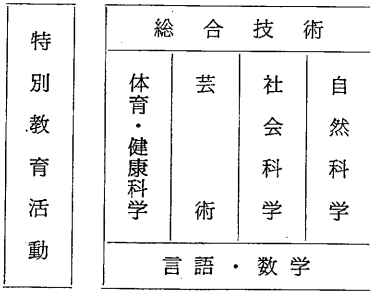 特別教育活動
総合技術
体育・健康科学
芸術
社会科学
自然科学
言語・数学